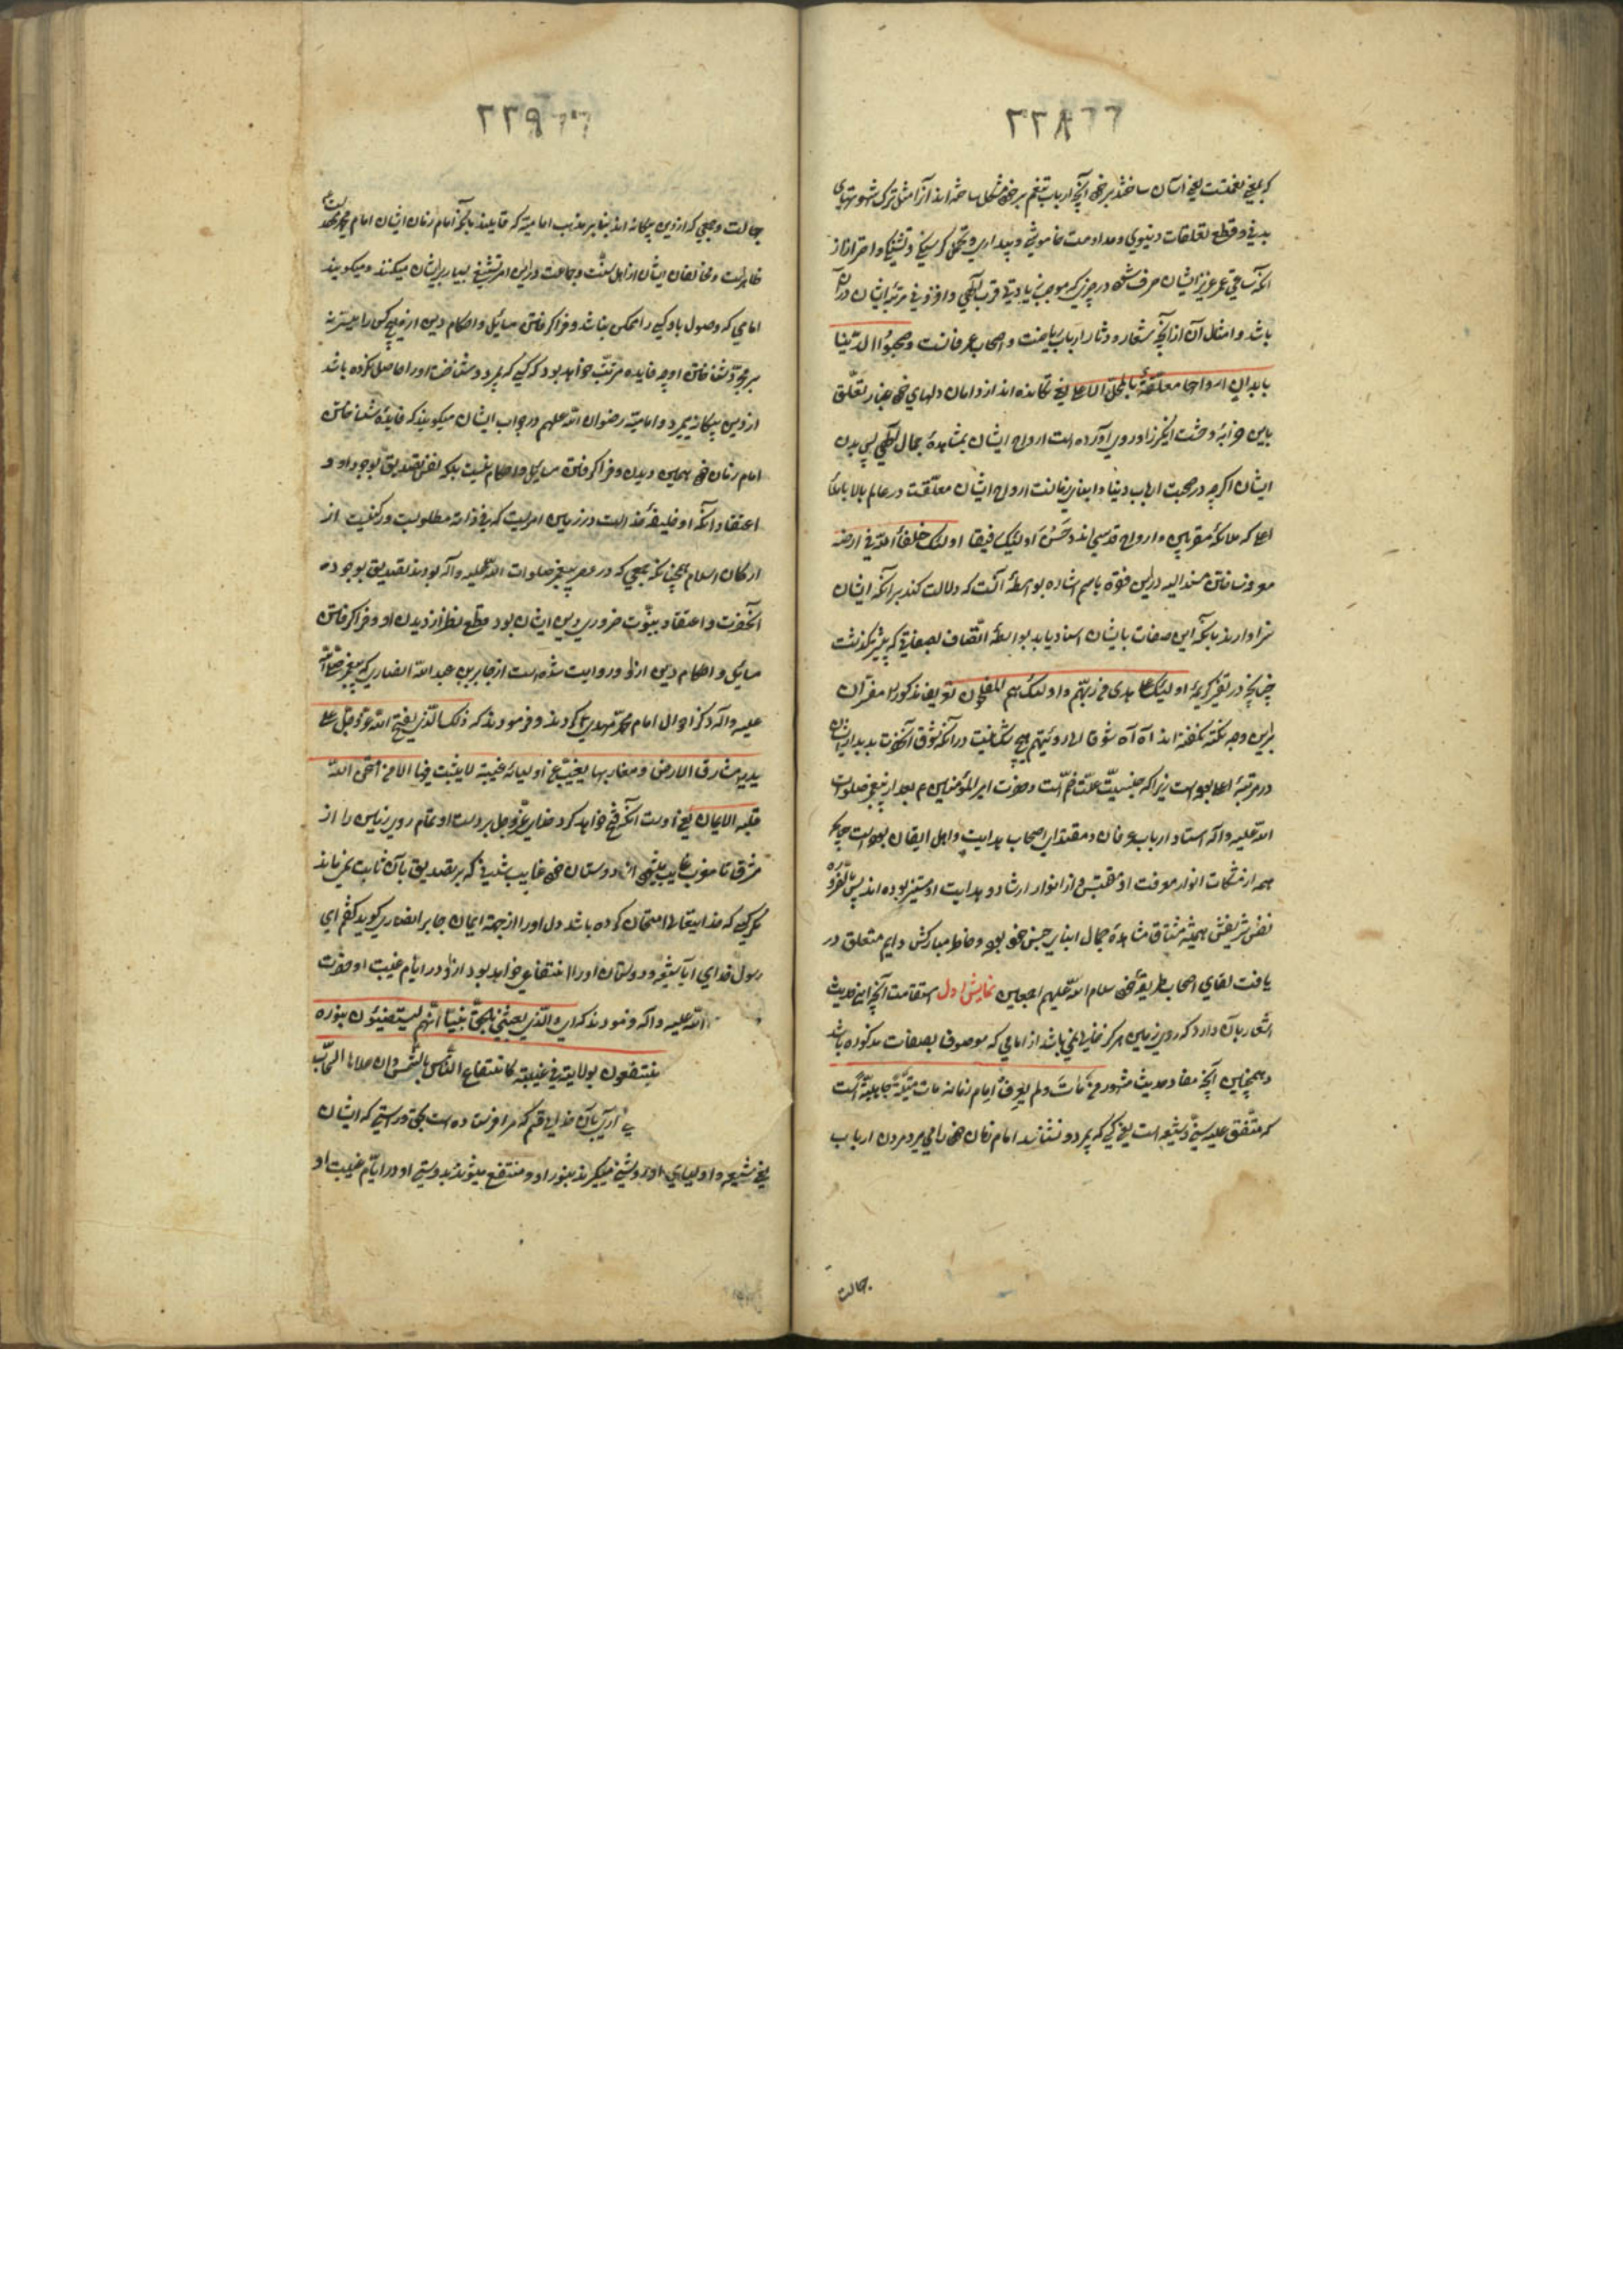 ۲۲۸
که بمعنی نعمتست یعنی آسان ساختند بر خود آنچه ارباب تنعم بر خود مشکل ساخته اند از آن مثل ترک شهوتهای
بدنی و قطع تعلقات دنیوی و مداومت خاموشی و بیداری و تحمل گرسنگی و تشنگی و احتراز از
آنکه ساعتی عمر عزیز ایشان صرف شود در چیزی که موجب زیادتی قرب الهی و افزونی مرتبه ایشان در آن
باشد و امثال آن از آنچه شعار و دثار ارباب ریاضت و اصحاب عرفانست وصحبوا الدنیا
بابدان ارواحها معلقة بالمحل الاعلی یعنی تکانده اند از دامان دلهای خود غبار تعلق
باین خرابهٔ وحشت انگیز را و روی آورده است ارواح ایشان بمشاهدهٔ جمال الهی پس بدن
ایشان اگرچه در صحبت ارباب دنیا و ابنای زمانست ارواح ایشان معلقست در عالم بالا باملأ
اعلی که ملائکهٔ مقربین و ارواح قدسی اند وحسن اولئک رفیقا اولئک خلفاء الله فی ارضه
معروف ساختن مسند الیه درین فقره باسم اشاره بواسطهٔ آنست که دلالت کند بر آنکه ایشان
سزاوارند بآنکه این صفات بایشان اسناد یابد بواسطهٔ اتصاف بصفاتی که پیشتر گذشت
چنانچه در تفسیر کریمهٔ اولئک علی هدی من ربهم واولئک هم المفلحون تعریف مذکور را مفسران
براین وجه نکته گفته اند آه آه شوقا الی رؤیتهم هیچ شک نیست در آنکه شوق آنحضرت بدیدار ایشان
در مرتبهٔ اعلی بوده است زیرا که جنسیت علت ضم است و حضرت امیرالمؤمنین م بعد از پیغمبر صلوات
الله علیه واله استاد ارباب عرفان و مقتدای اصحاب هدایت و اهل ایقان بوده است چه
همه از مشکات انوار معرفت او مقتبس و از انوار ارشاد و هدایت او مستنیر بوده اند پس بالضروره
نفس شریفش همیشه مشتاق مشاهدهٔ جمال ابنای جنس خود بود و خاطر مبارکش دایم متعلق در
یافت لقای اصحاب طریقهٔ خود سلام الله علیهم اجمعین نمایش اول استقامت آنچه این حدیث
اشعار بآن دارد که روی زمین هرگز خالی نمی باشد از امامی که موصوف بصفات مذکوره باشد
و همچنین آنچه مفاد حدیث مشهور من مات ولم یعرف امام زمانه مات میتة جاهلیة است
که متفق علیه سنی و شیعه است یعنی کسی که بمیرد و نشناسد امام زمان خود را می میرد مردن ارباب
جهالت
۲۲۹
جهالت و جمعی که از دین بیگانه اند بنا بر مذهب امامیه که قایلند بآنکه امام زمان ایشان امام محمد مهدی
ظاهرست و مخالفان ایشان از اهل سنت و جماعت درین امر تشنیع بسیار بر ایشان میکنند و میگویند
امامی که وصول باو کسی را ممکن نباشد و فراگرفتن مسایل و احکام دین از وی هیچ کس را میسر نه
بر مجرد شناختن او چه فایده مرتب خواهد بود که کسی که بمیرد و شناخت او را حاصل نکرده باشد
از دین بیگانه بمیرد و امامیه رضوان الله علیهم در جواب ایشان میگویند که فایدهٔ شناختن
امام زمان خود همین دیدن و فراگرفتن مسایل و احکام نیست بلکه نفس تصدیق بوجود او و
اعتقاد آنکه او خلیفهٔ خداست در زمین امریست که فی ذاته مطلوبست و رکنیست از
ارکان اسلام همچنانکه جمعی که در عصر پیغمبر صلوات الله علیه و آله بودند تصدیق بوجود
آنحضرت و اعتقاد بنبوت ضروری دین ایشان بود قطع نظر از دیدن او و فراگرفتن
مسایل و احکام دین ازو و روایت شده است از جابر بن عبد الله انصاری که پیغمبر صلوات الله
علیه و آله ذکر احوال امام محمد مهدی کردند و فرمودند که ذلک الذی یفتح الله عز وجل علی
یدیه مشارق الارض ومغاربها یغیب عن اولیائه غیبة لا یثبت فیها الا من امتحن الله
قلبه للایمان یعنی اوست آنکه فتح خواهد کرد خدای عز وجل بر دست او تمام روی زمین را از
مشرق تا مغرب غایب میشود از دوستان خود غایب شدنی که بر تصدیق بآن ثابت نمی ماند
مگر کسی که خدایتعالی امتحان کرده باشد دل او را از جهة ایمان جابر انصاری گوید گفتم ای
رسول خدای آیا شیعه و دوستان او را انتفاعی خواهد بود ازو در ایام غیبت او حضرت
الله علیه و آله فرمودند که ای والذی بعثنی بالحق نبیا انهم لیستضیئون بنوره
وینتفعون بولایته فی غیبته کانتفاع الناس بالشمس وان علاها السحاب
یعنی آری بآن خدای قسم که مرا فرستاده است بحق و راستی که ایشان
یعنی شیعه و اولیای او روشنی میگیرند بنور او و منتفع میشوند بدوستی او در ایام غیبت او